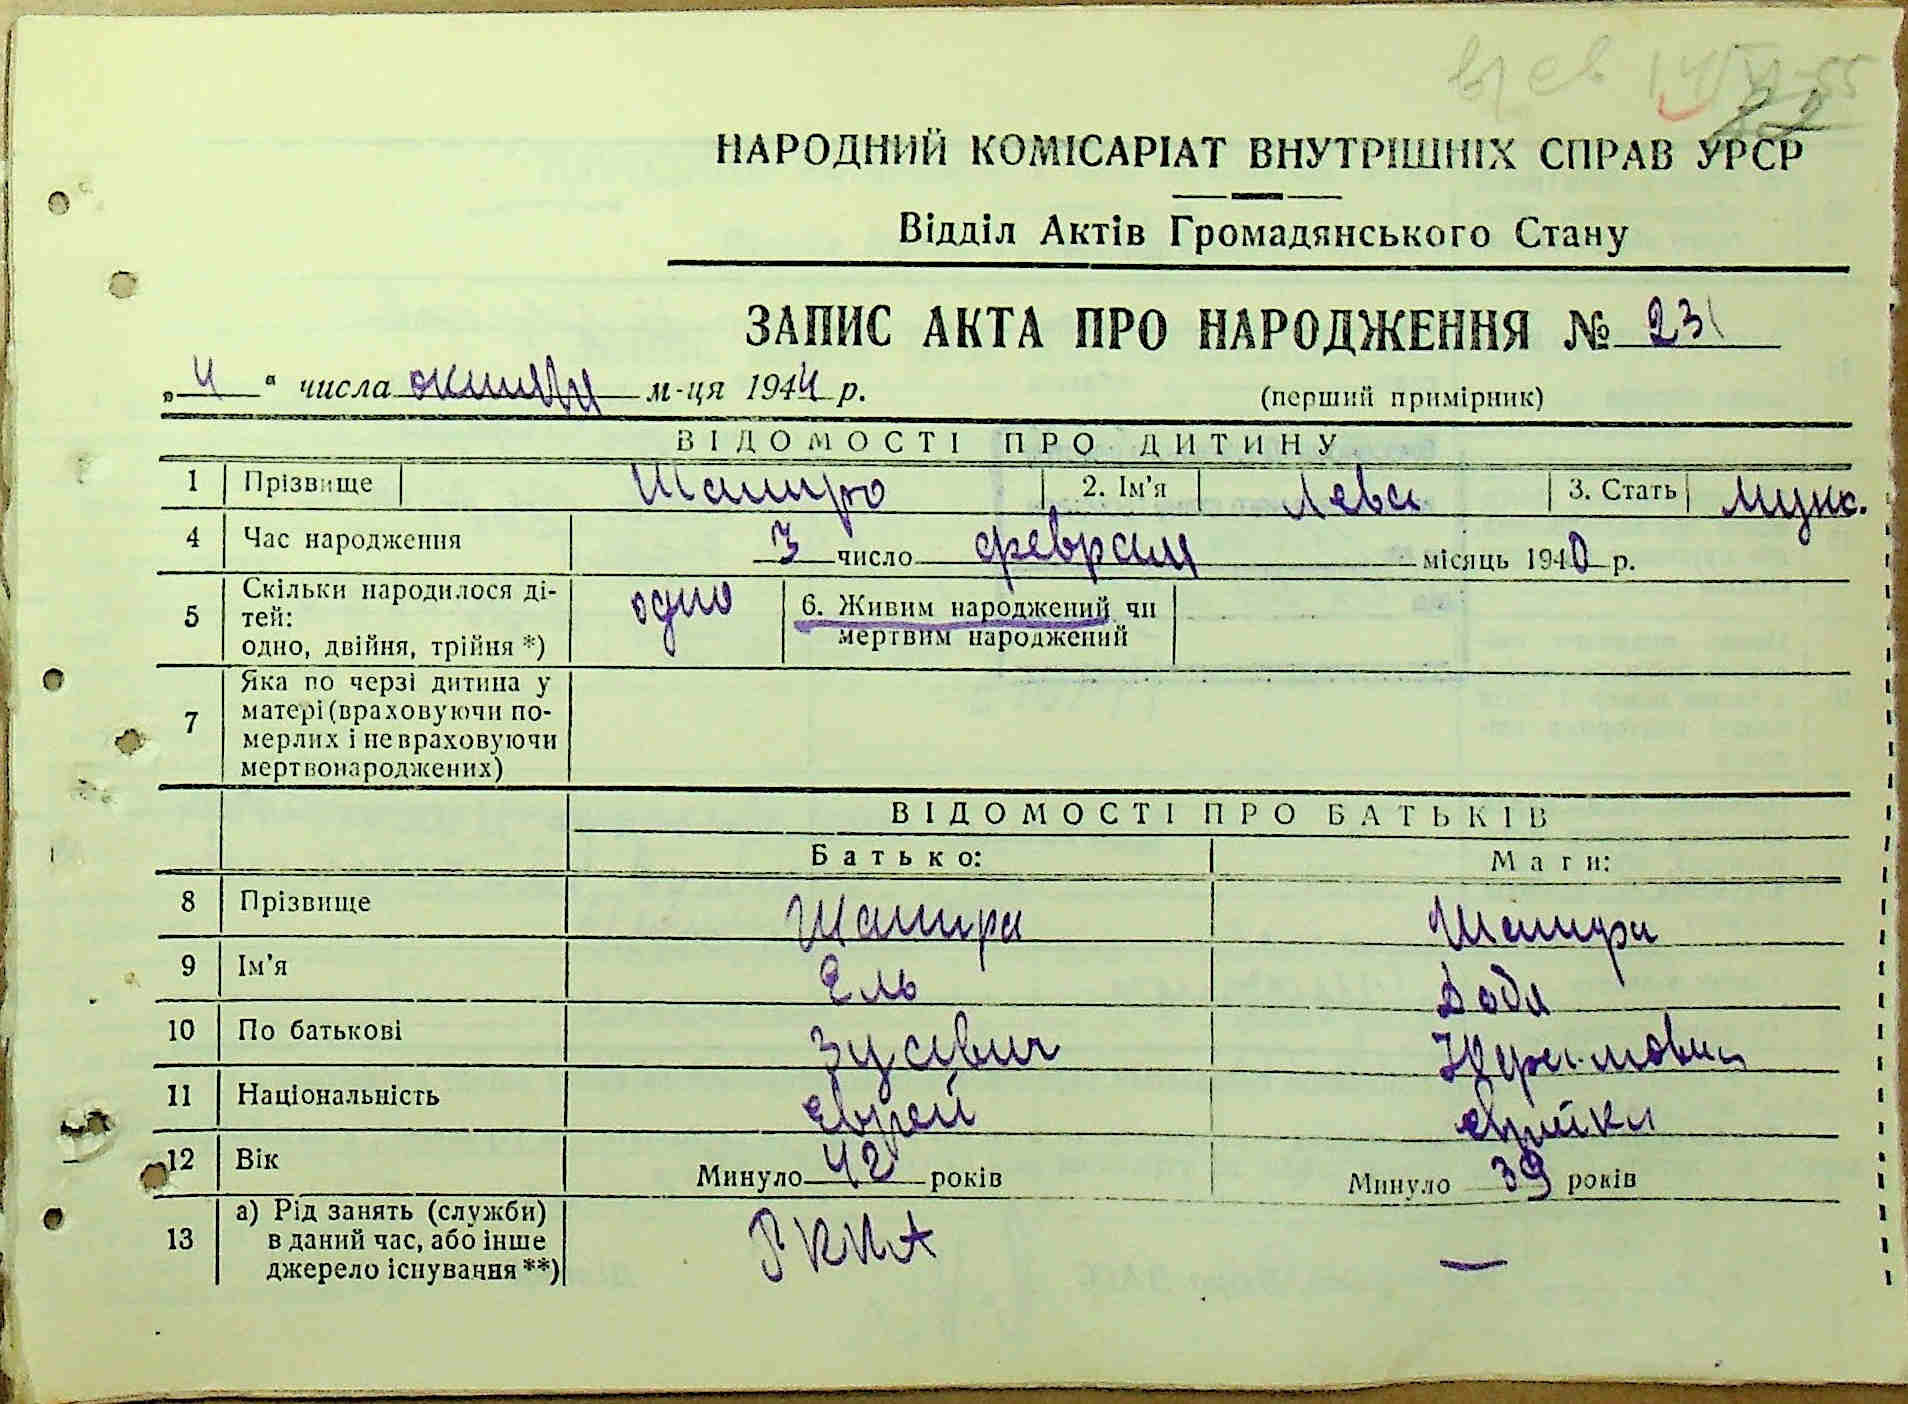 14/VI-55
22
НАРОДНИЙ КОМІСАРІАТ ВНУТРІШНІХ СПРАВ УРСР
Відділ Актів Громадянського Стану
ЗАПИС АКТА ПРО НАРОДЖЕННЯ № 231
„ 4 “ числа октября м-ця 1944 р. (перший примірник)
ВІДОМОСТІ ПРО ДИТИНУ
1 Прізвище Шапиро 2. Ім'я Лева 3. Стать мужс.
4 Час народження 3 число февраля місяць 1940 р.
5 Скільки народилося ді-
тей:
одно, двійня, трійня *) одно 6. Живим народжений чи
мертвим народжений
7 Яка по черзі дитина у
матері (враховуючи по-
мерлих і не враховуючи
мертвонароджених)
ВІДОМОСТІ ПРО БАТЬКІВ
Батько: Мати:
8 Прізвище Шапира Шапира
9 Ім'я Ель
10 По батькові Зусевич
11 Національність еврей еврейка
12 Вік Минуло 42 років Минуло 39 років
13 а) Рід занять (служби)
в даний час, або інше
джерело існування **) РККА —